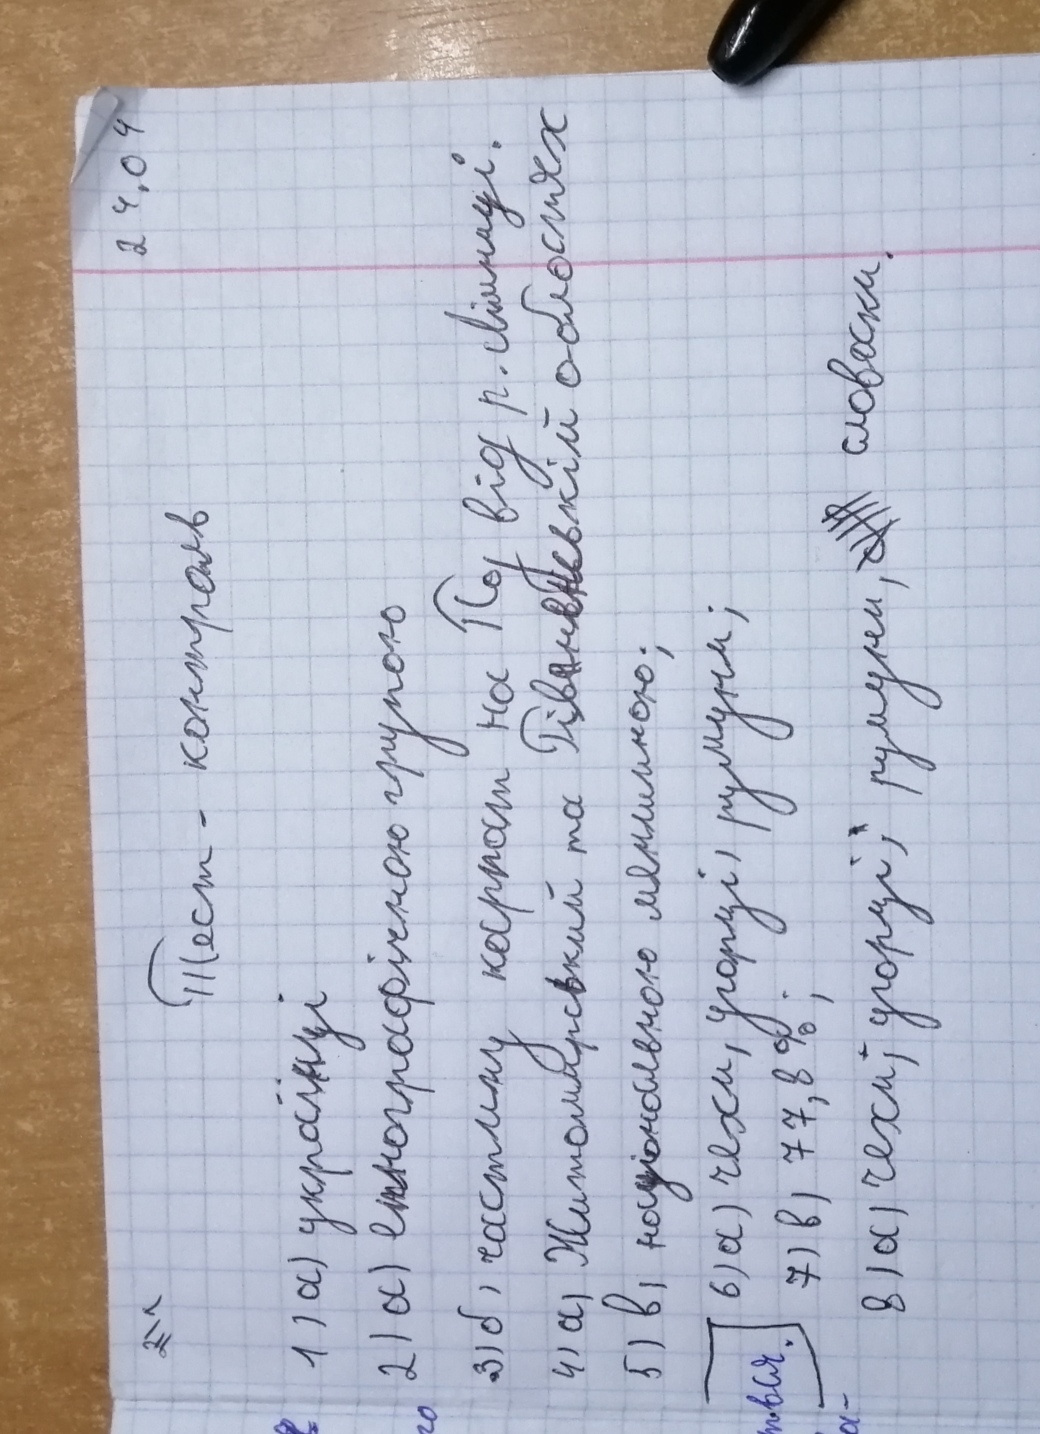 24.04
Тест - контроль
1) а) українці
2) а) етнографічною групою
3) б) частину карпат на Пд від р. Лімниці.
4) а) Житомирський та Рівненській областях
5) в) національною меншиною;
6) а) чехи, угорці, румуни;
7) в) 77,8 %;
8) а) чехи, угорці, румуни, словаки.
го
ться.
а-